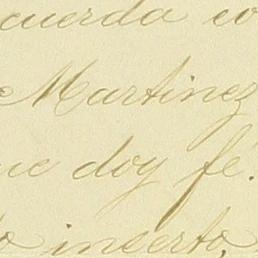 cuerda co
Martinez
ue doy fé.
o inserto,